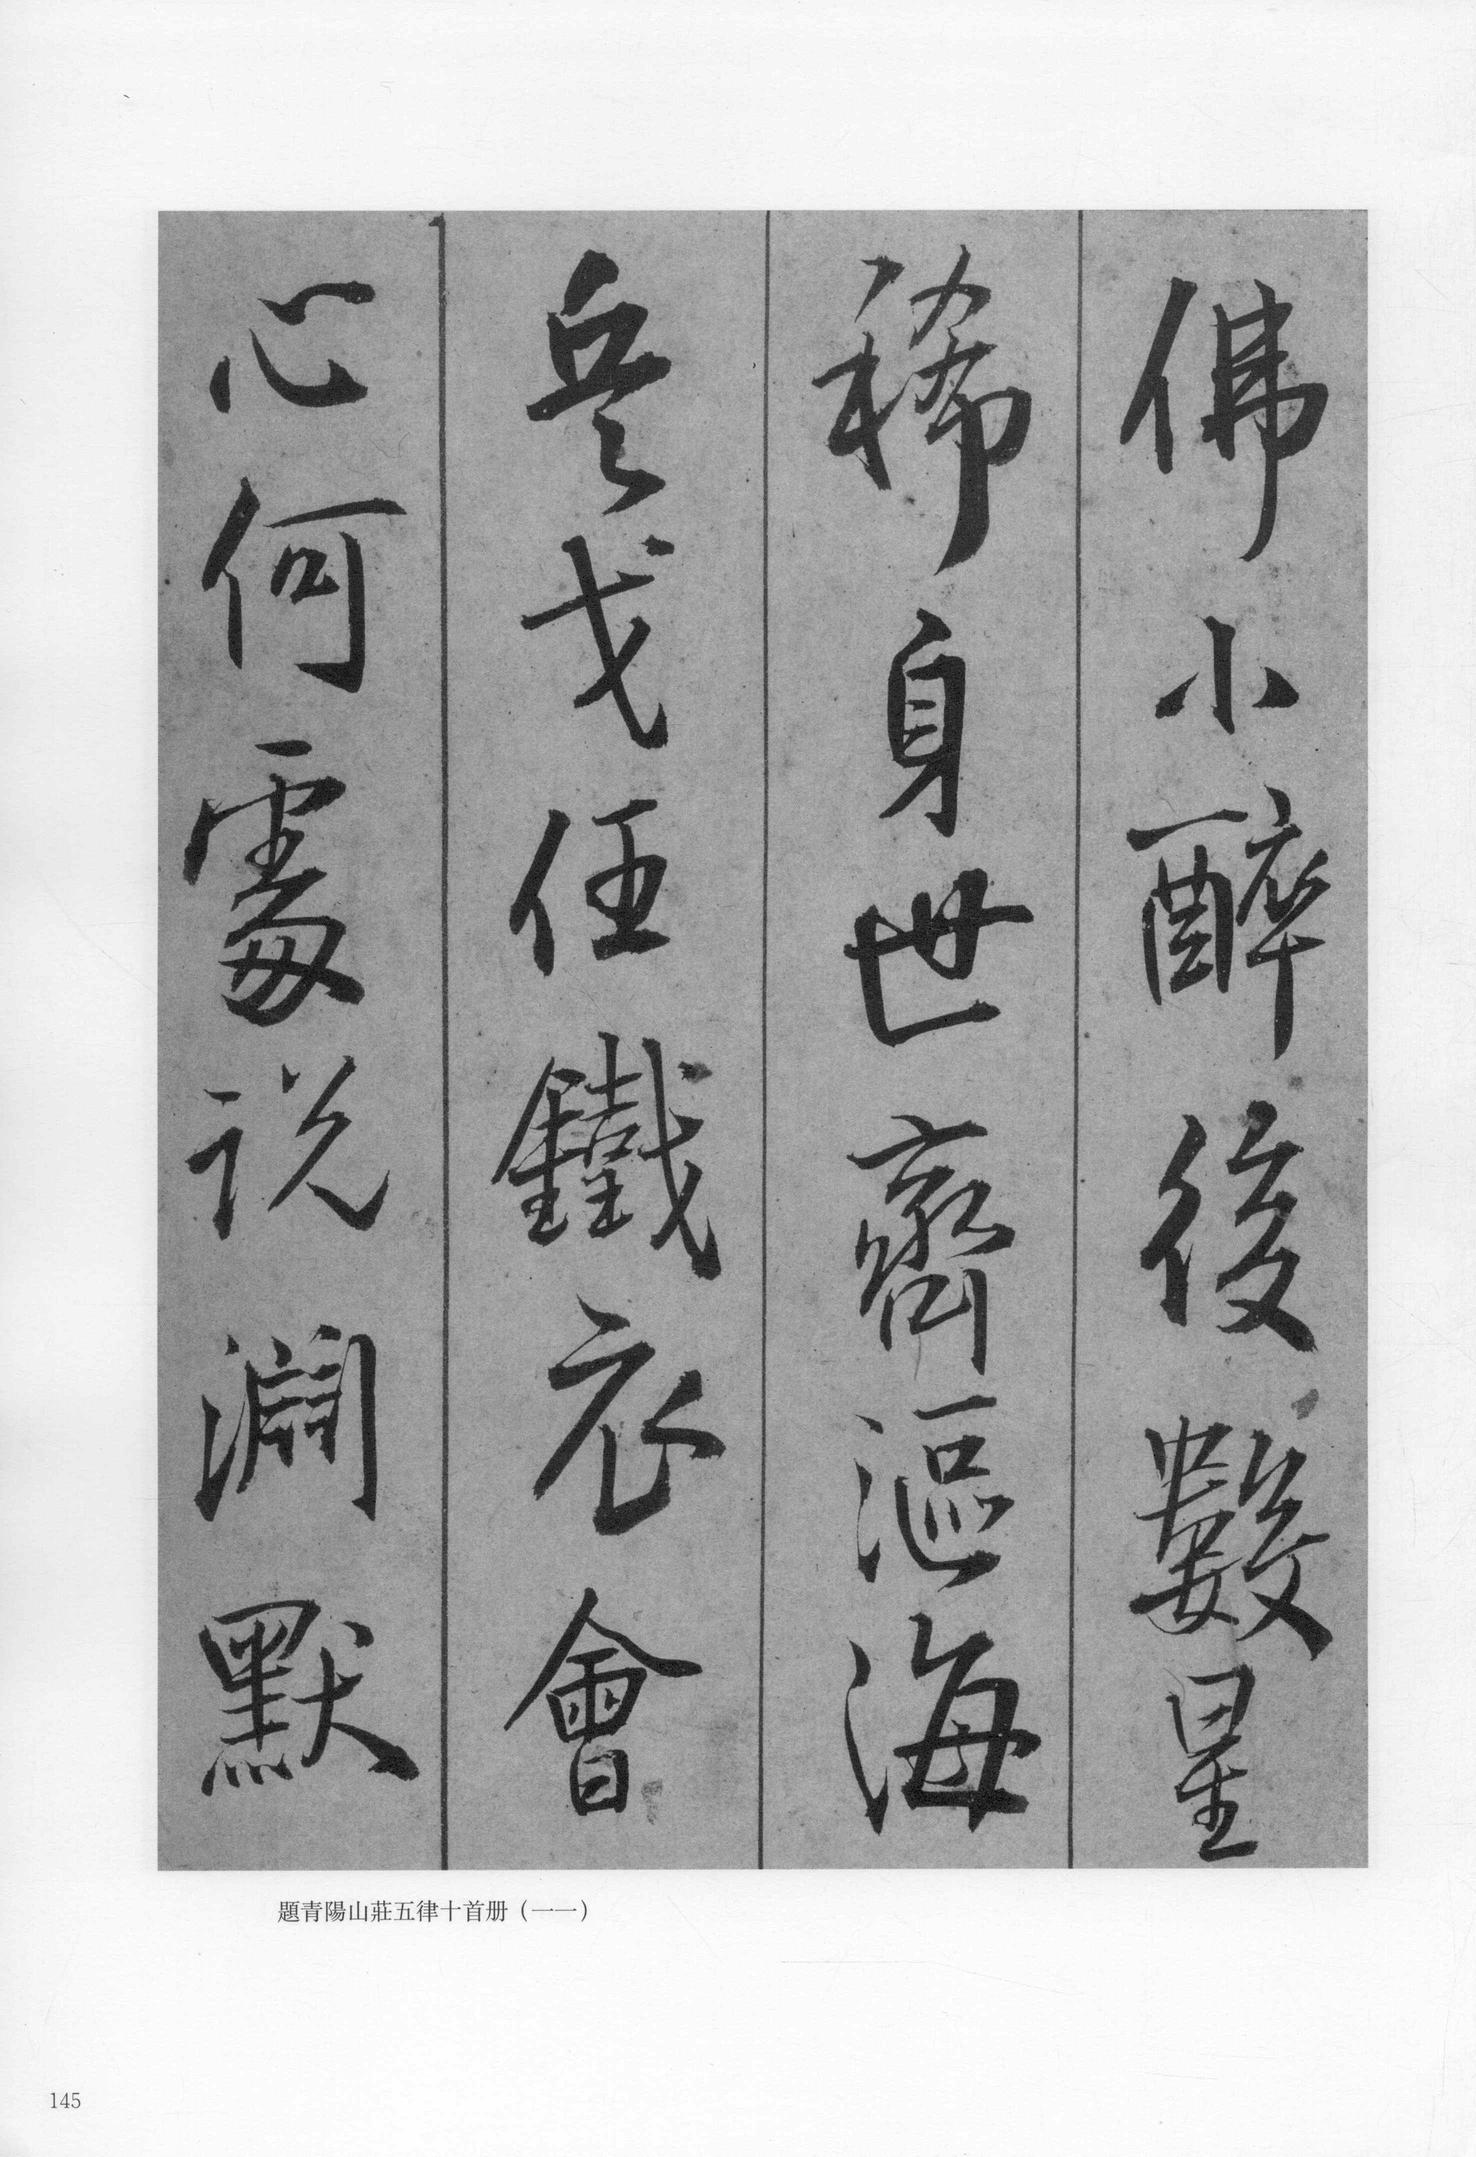 佛小醉後數星
稀身世齊漚海
兵戈任鐵衣會
心何處說淵默
題青陽山莊五律十首册（一一）
145